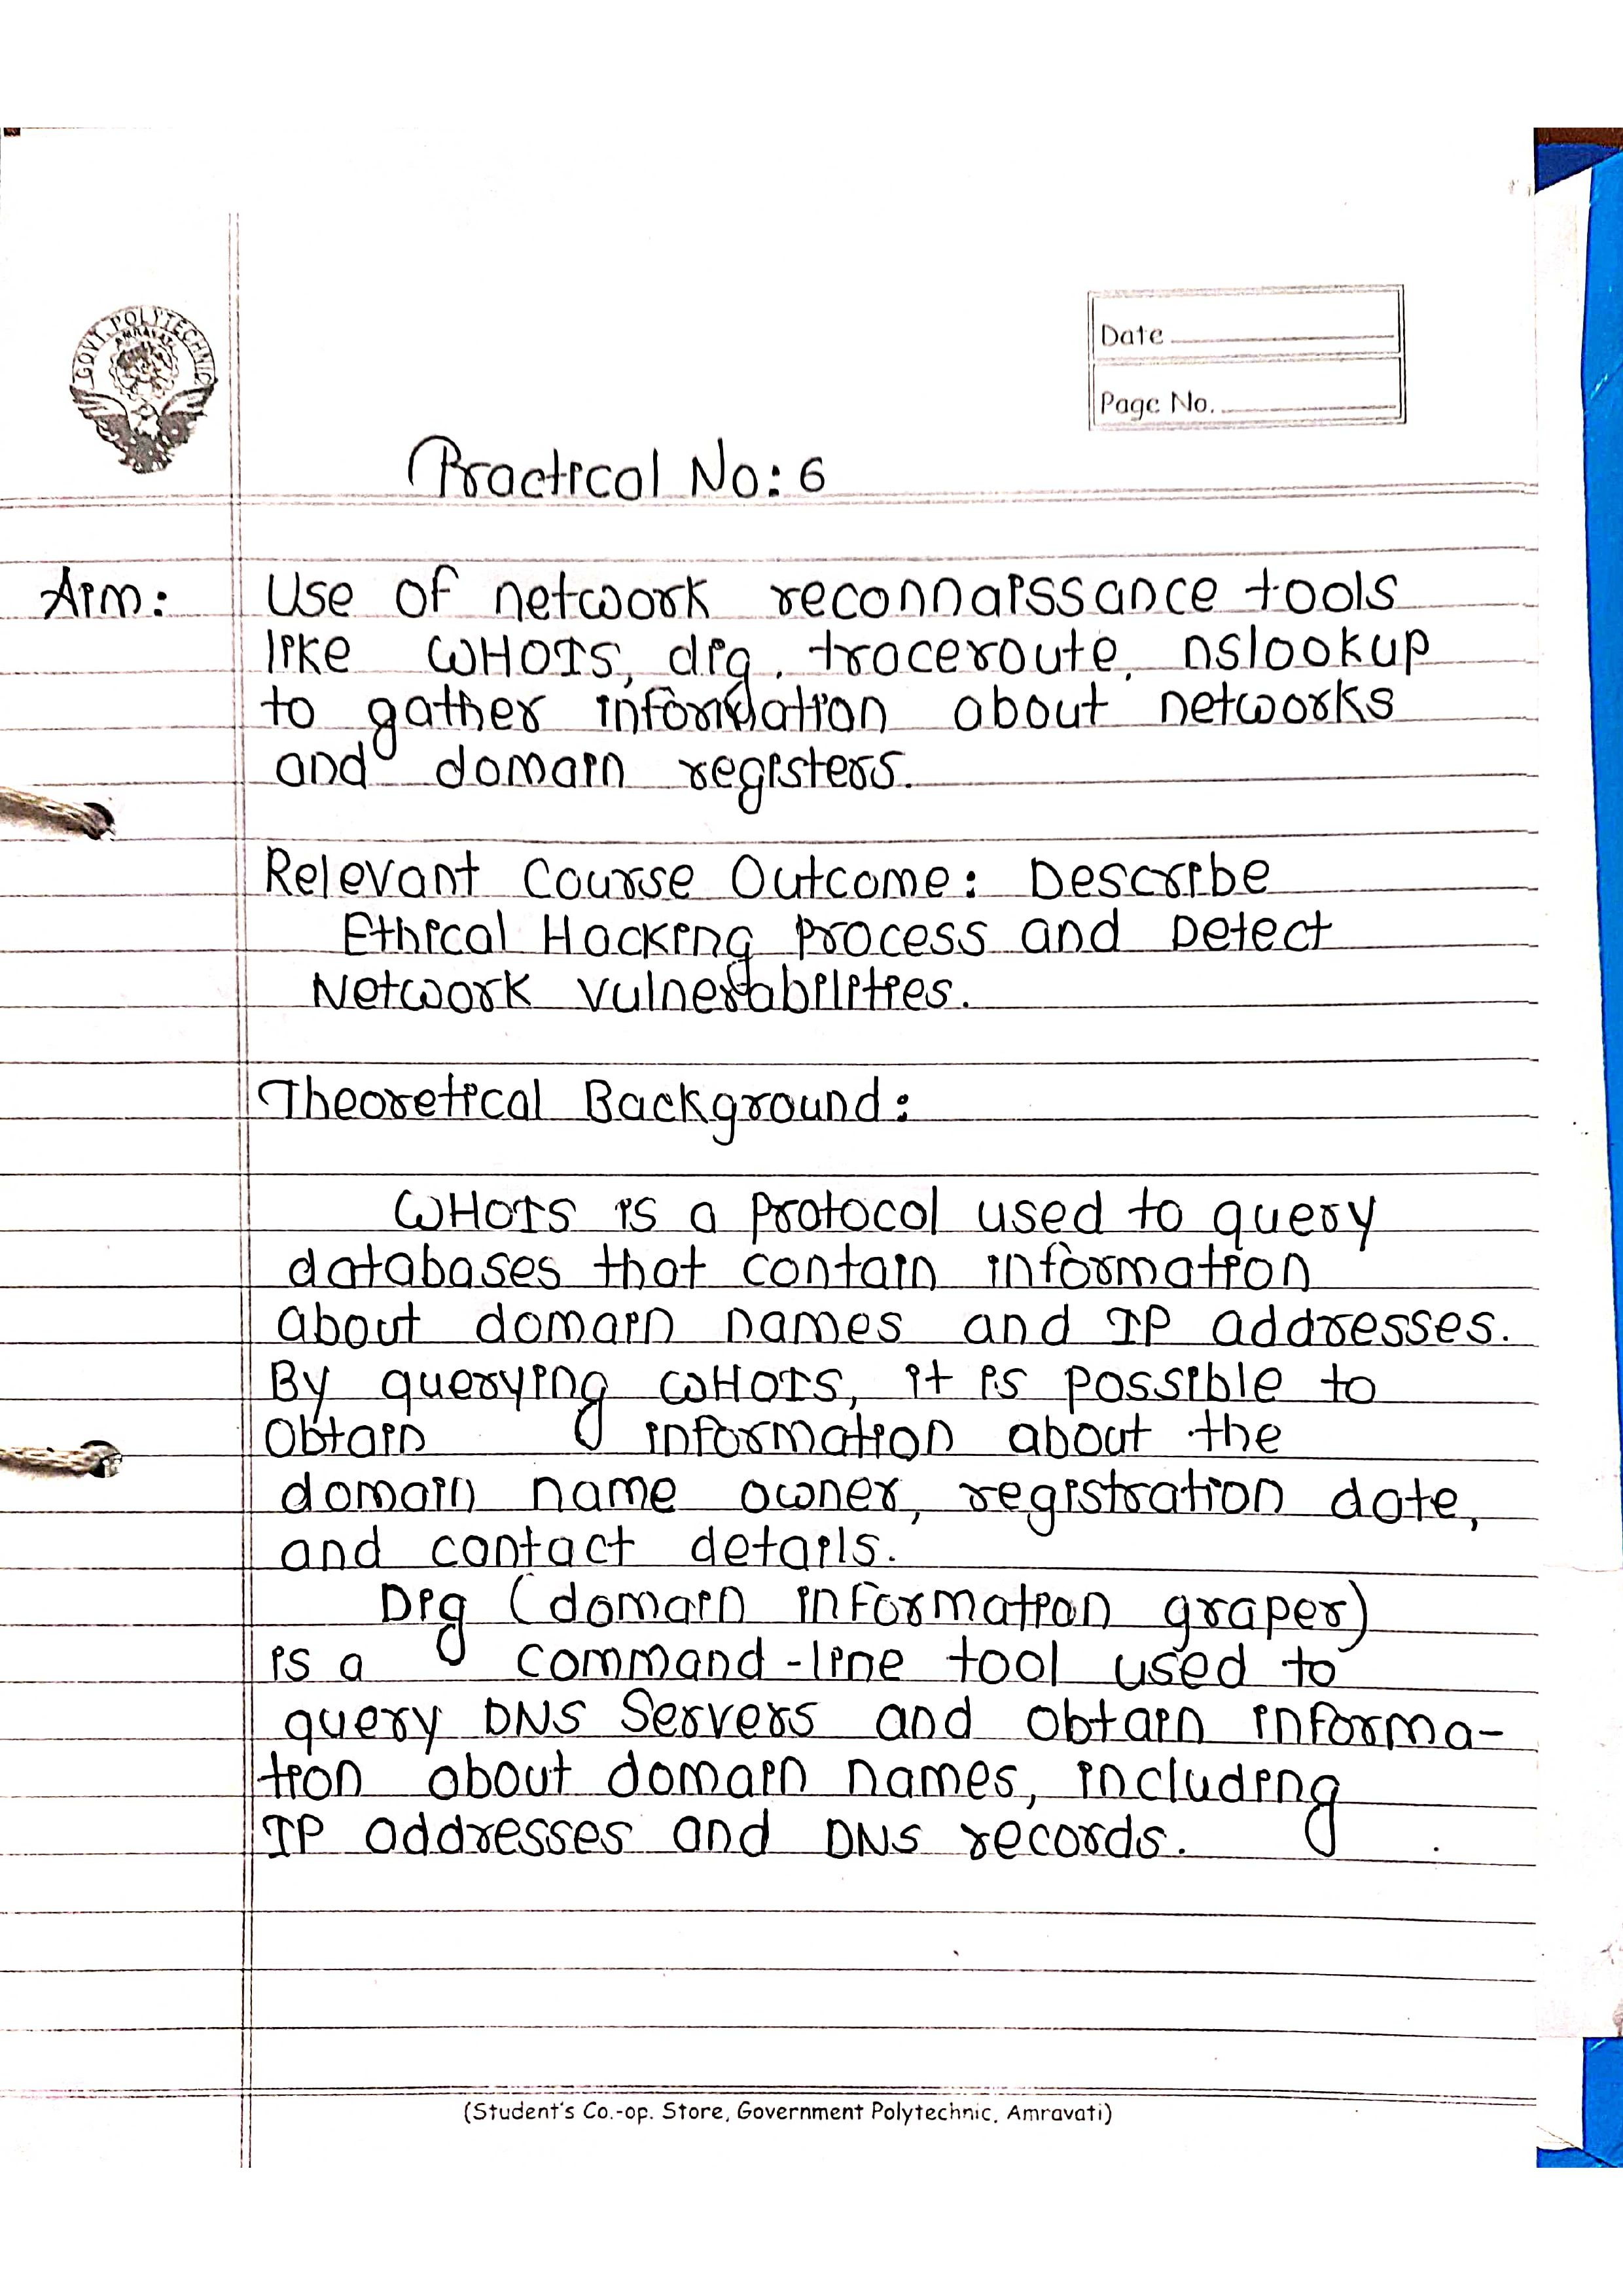 GOVT. POLYTECHNIC
AMRAVATI
Date
Page No.
Practical No: 6
Aim: Use of network reconnaissance tools
like WHOIS, dig, traceroute, nslookup
to gather information about networks
and domain registers.
Relevant Course Outcome: Describe
Ethical Hacking process and Detect
Network vulnerabilities.
Theoretical Background:
WHOIS is a protocol used to query
databases that contain information
about domain names and IP addresses.
By querying WHOIS, it is possible to
obtain information about the
domain name owner, registration date,
and contact details.
Dig (domain information graper)
is a command-line tool used to
query DNS Servers and obtain informa-
tion about domain names, including
IP addresses and DNS records.
(Student's Co.-op. Store, Government Polytechnic, Amravati)